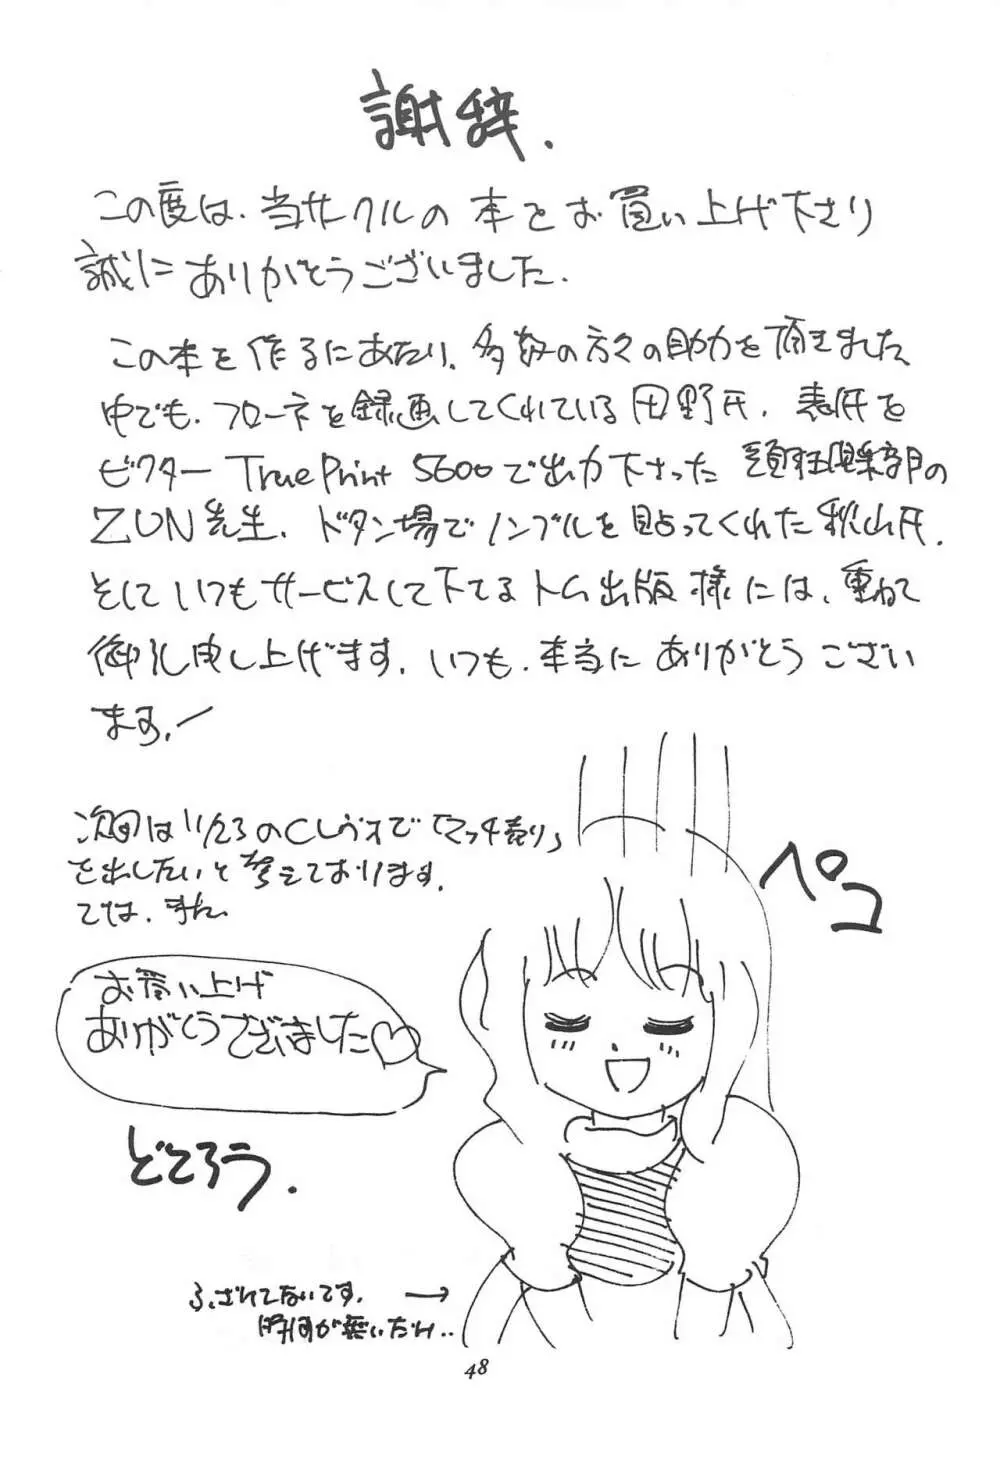 謝辞.
この度は、当サークルの本をお買い上げ下さり
誠にありがとうございました.
この本を作るにあたり、多数の方々の助力を頂きました
中でも、フローネを録画してくれている田野氏、表紙を
ビクター True Print 5600で出力下さった
ZUN先生、ドタン場でノンブルを貼ってくれた秋山氏、
そしていつもサービスして下さるトム出版様には、重ねて
御礼申し上げます. いつも、本当にありがとうござい
ます.
次回は11/23のCレヴォで「マッチ売り」
を出したいと考えております.
では、また.
ペコ
お買い上げ
ありがとうございました♡
どころう.
ふざけてないです. →
時間が無いだけ..
48